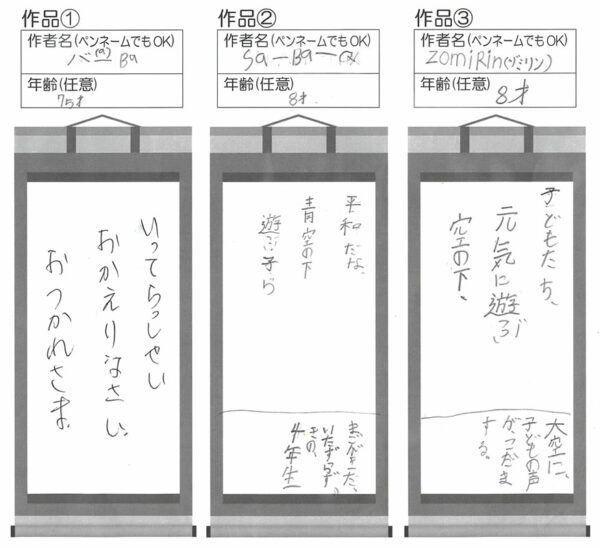 作品①
作者名(ペンネームでもOK)
バー(a)Ba
年齢(任意)
75才
いってらっしゃい
おかえりなさい、
おつかれさま。
作品②
作者名(ペンネームでもOK)
Sa-Ba-
年齢(任意)
8才
平和だな、
青空の下
遊ぶ子ら
いたずらずきの、
4年生
作品③
作者名(ペンネームでもOK)
ZomiRin(ゾミリン)
年齢(任意)
8才
子どもたち、
元気に遊ぶ
空の下、
大空に、
子どもの声
がこだま
する。